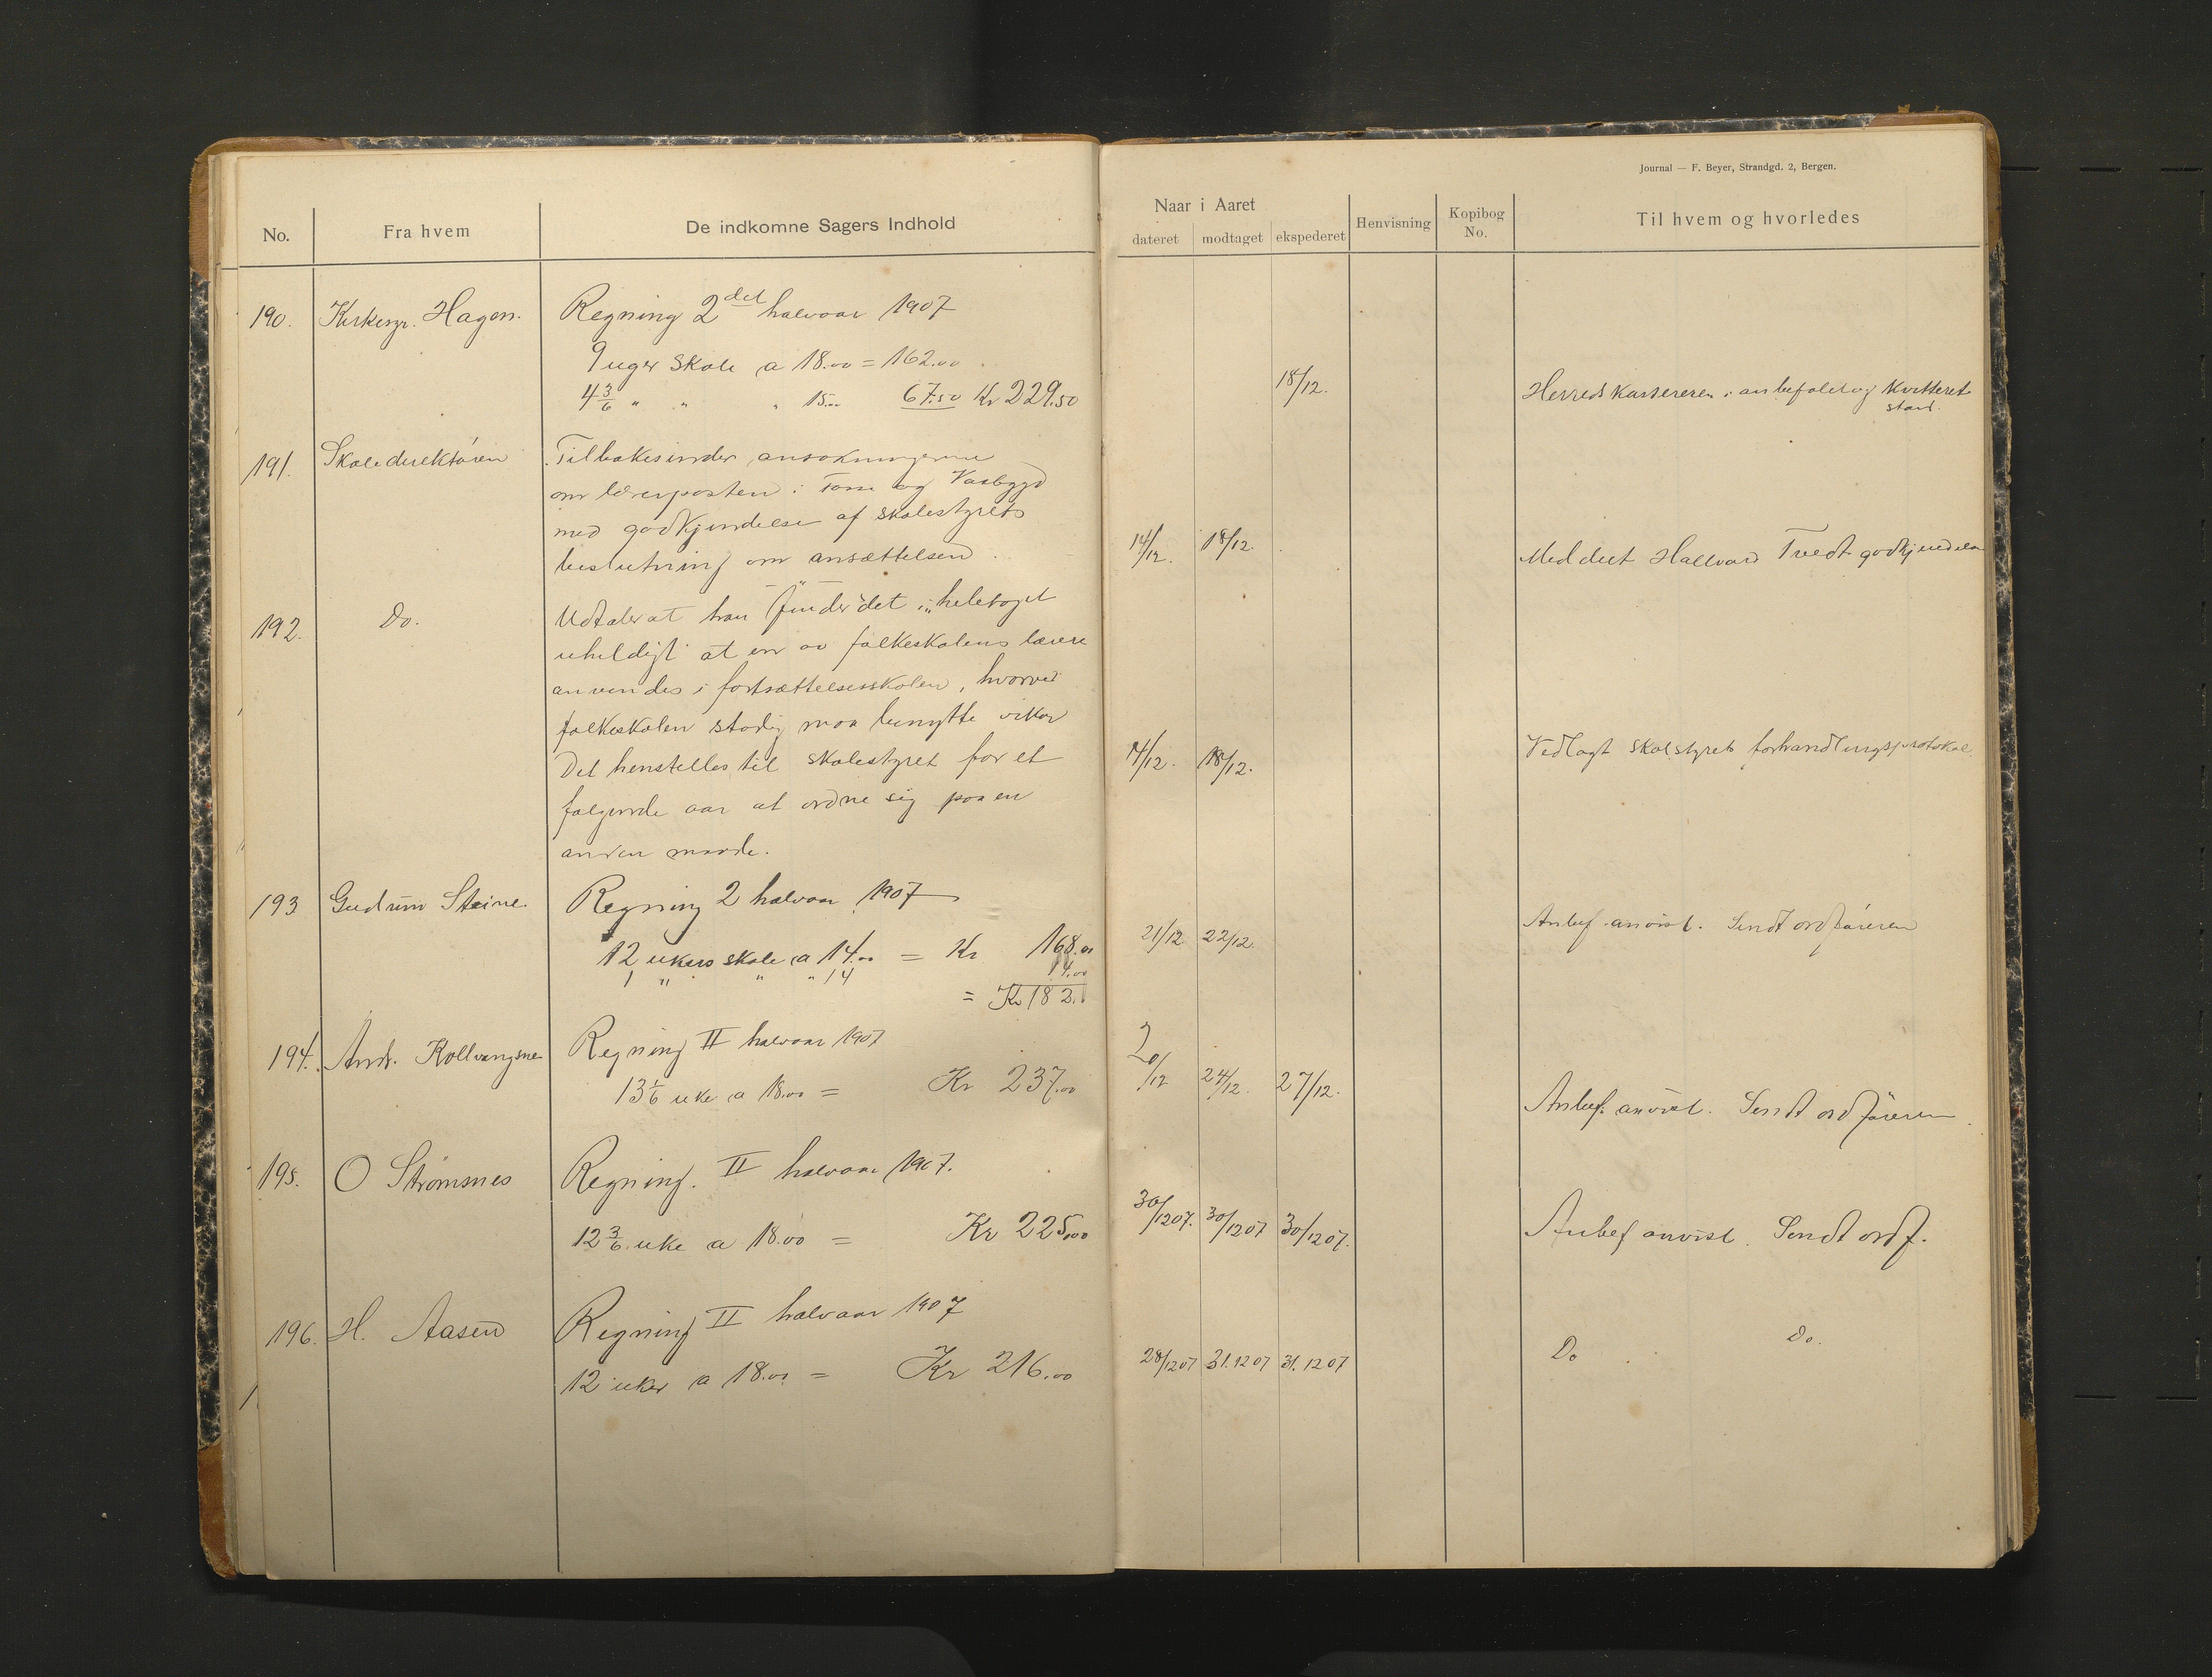 Journal — F. Beyer, Strandgd. 2, Bergen.
No. Fra hvem De indkomne Sagers Indhold
Naar i Aaret
dateret modtaget ekspederet Henvisning Kopibog No. Til hvem og hvorledes
190. Kirkesgr. Hagen. Regning 2det halvaar 1907
9 uger skole a 18.00 = 162.00
4 3/6 " " " 15.00 67.50 Kr 229.50 18/12. Herredskassereren i anbefalet og kvitteret
stand.
191. Skoledirektøren Tilbakesender ansøkningerne
om lærerposten i og
med godkjendelse af skolestyrets
beslutning om ansættelsen. 14/12. 18/12. Meddelt Hallvard Tvedt godkjendelsen
192. Do. Udtaler at han finder det i "heletaget
uheldigt" at en av folkeskolens lærere
anvendes i fortsættelsesskolen, hvorved
folkeskolen stadig maa benytte vikar
Det henstilles til skolestyret for et 14/12. 18/12. Vedlagt skolstyrets forhandlingsprotokol
følgende aar at ordne sig paa en
anden maade.
193 Gudrun Steine. Regning 2 halvaar 1907
12 ukers skole a 14.00 = Kr 168.00 21/12 22/12. Anbef. anvist. Sendt ordføreren
1 " " " 14 14.00
= Kr 182.
194. Andr. Kollvangsnes Regning II halvaar 1907
13 1/6 uke a 18.00 = Kr 237.00 20/12 24/12. 27/12. Anbef. anvist. Sendt ordføreren.
195. O Strømsnes Regning. II halvaar 1907.
12 3/6 uke a 18.00 = Kr 225.00 30/1207. 30/1207 30/1207. Anbef anvist. Sendt ordf.
196. H. Aasen Regning II halvaar 1907
12 uker a 18.00 = Kr 216.00 28/1207 31.1207 31.1207 Do Do.